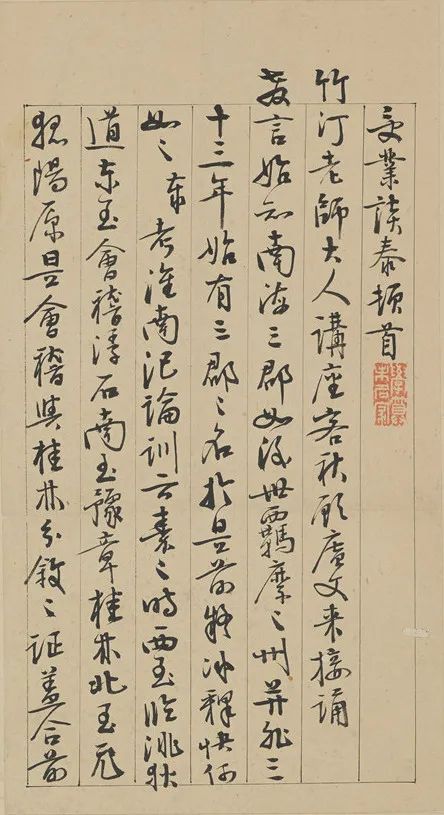 受業談泰頓首
竹汀老師大人講座客秋顧廣文来接誦
教言始知南海三郡如後世羈縻之州并非三
十三年始有三郡之名於是前疑冰釋快何
如之泰考淮南氾論訓云秦之時西至臨洮狄
道東至會稽浮石南至豫章桂林北至飛
狐陽原是會稽與桂林分敘之証蓋合前